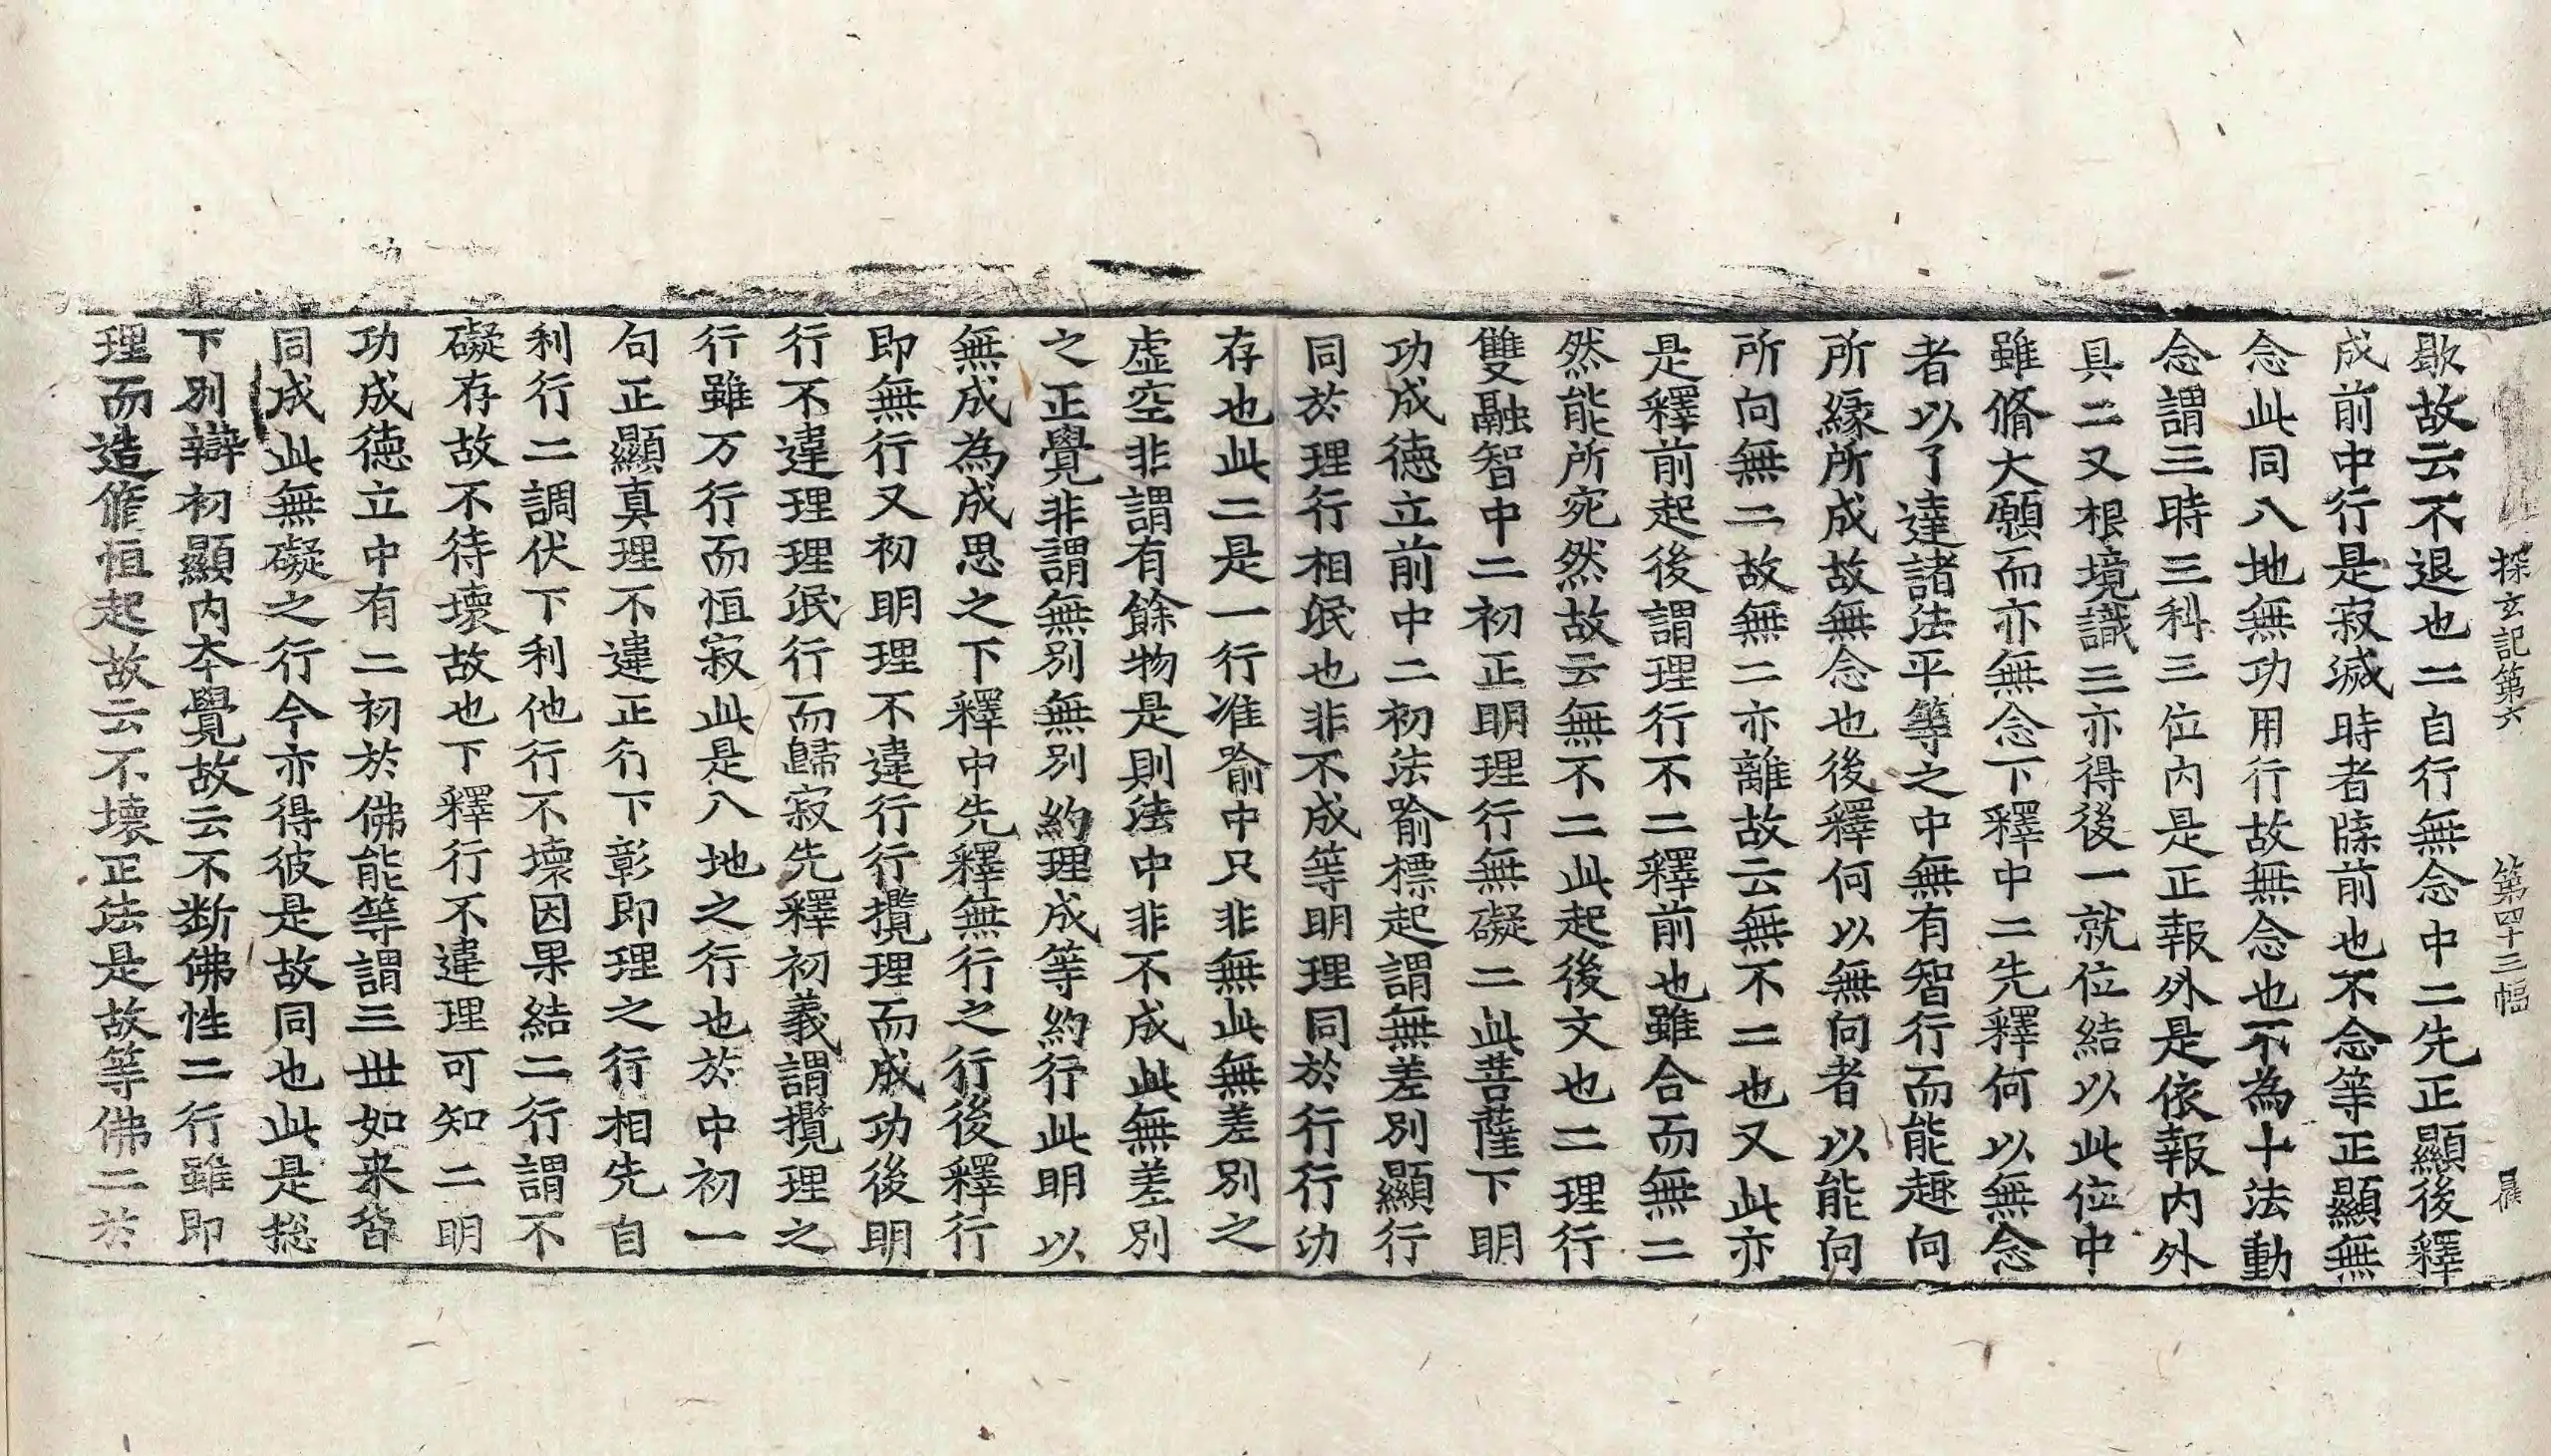 探玄記第六 第四十三幅
歇故云不退也二自行無念中二先正顯後釋
成前中行是寂滅時者牒前也不念等正顯無
念此同八地無功用行故無念也不為十法動
念謂三時三科三位內是正報外是依報內外
具二又根境識三亦得後一就位結以此位中
雖脩大願而亦無念下釋中二先釋何以無念
者以了達諸法平等之中無有智行而能趣向
所緣所成故無念也後釋何以無向者以能向
所向無二故無二亦離故云無不二也又此亦
是釋前起後謂理行不二釋前也雖合而無二
然能所宛然故云無不二此起後文也二理行
雙融智中二初正明理行無礙二此菩薩下明
功成德立前中二初法喻標起謂無差別顯行
同於理行相泯也非不成等明理同於行行功
存也此二是一行准喻中只非無此無差別之
虛空非謂有餘物是則法中非不成此無差別
之正覺非謂無別無別約理成等約行此明以
無成為成思之下釋中先釋無行之行後釋行
即無行又初明理不違行行攬理而成功後明
行不違理理泯行而歸寂先釋初義謂攬理之
行雖万行而恒寂此是八地之行也於中初一
句正顯真理不違正行下彰即理之行相先自
利行二調伏下利他行不壞因果結二行謂不
礙存故不待壞故也下釋行不違理可知二明
功成德立中有二初於佛能等謂三世如来皆
同成此無礙之行今亦得彼是故同也此是摠
下別辯初顯內本覺故云不斷佛性二行雖即
理而造脩恒起故云不壞正法是故等佛二於